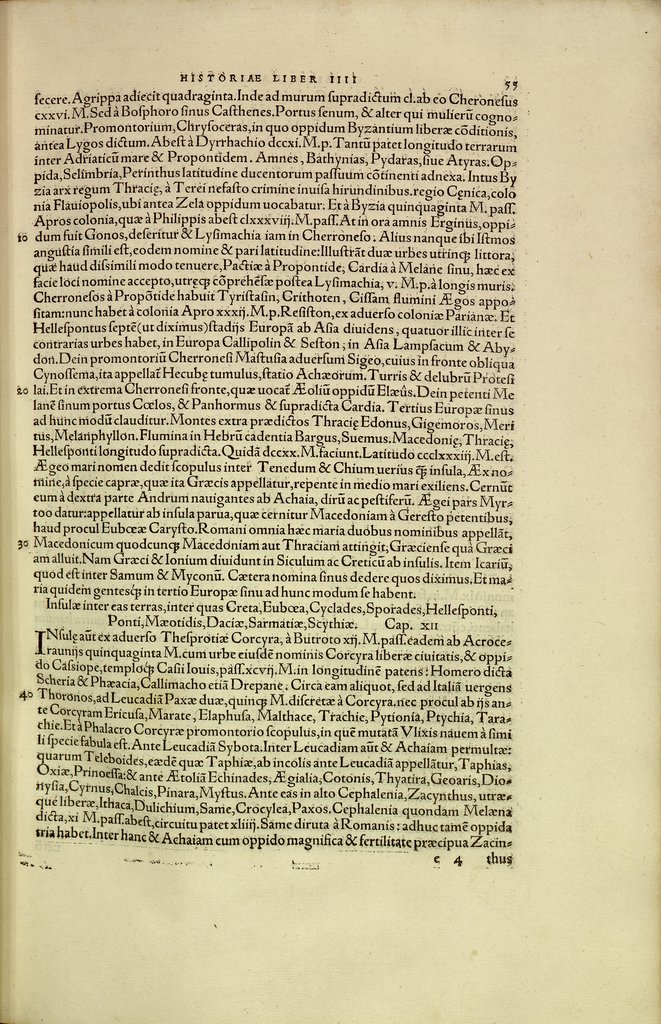 HISTORIAE LIBER IIII 55
fecere. Agrippa adiecit quadraginta. Inde ad murum supradictum cl. ab eo Cheronesus
cxxvi. M. Sed à Bosphoro sinus Casthenes. Portus senum, & alter qui mulierū cogno=
minatur. Promontorium, Chrysoceras, in quo oppidum Byzantium liberæ cōditionis,
antea Lygos dictum. Abest à Dyrrhachio dccxi. M. p. Tantū patet longitudo terrarum
inter Adriaticū mare & Propontidem. Amnes, Bathynias, Pydaras, siue Atyras. Op=
pida, Selimbria, Perinthus latitudine ducentorum passuum cōtinenti adnexa. Intus By
zia arx regum Thracię, à Terei nefasto crimine inuisa hirundinibus. regio Cęnica, colo
nia Flauiopolis, ubi antea Zela oppidum uocabatur. Et à Byzia quinquaginta M. pass.
Apros colonia, quæ à Philippis abest clxxxviij. M. pass. At in ora amnis Erginus, oppi=
10 dum fuit Gonos, deseritur & Lysimachia iam in Cherroneso. Alius nanque ibi Istmos
angustia simili est, eodem nomine & pari latitudine: Illustrāt duæ urbes utrinq; littora,
quæ haud dissimili modo tenuere, Pactiæ à Propontide, Cardia à Melane sinu, hæc ex
facie loci nomine accepto, utręq; cōprehēsæ postea Lysimachia, v. M. p. à longis muris.
Cherronesos à Propōtide habuit Tyristasin, Crithoten, Cissam flumini Ægos appo=
sitam: nunc habet à colonia Apro xxxij. M. p. Resiston, ex aduerso coloniæ Parianæ. Et
Hellespontus septē (ut diximus) stadijs Europā ab Asia diuidens, quatuor illic inter se
contrarias urbes habet, in Europa Callipolin & Seston, in Asia Lampsacum & Aby=
don. Dein promontoriū Cherronesi Mastusia aduersum Sigeo, cuius in fronte obliqua
Cynossema, ita appellat Hecubę tumulus, statio Achæorum. Turris & delubrū Protesi
20 lai. Et in extrema Cherronesi fronte, quæ uocat Æoliū oppidū Elæûs. Dein petenti Me
lanē sinum portus Cœlos, & Panhormus & supradicta Cardia. Tertius Europæ sinus
ad hunc modū clauditur. Montes extra prædictos Thracię Edonus, Gigemoros, Meri
tus, Melanphyllon. Flumina in Hebrū cadentia Bargus, Suemus. Macedonię, Thracię,
Hellesponti longitudo supradicta. Quidā dccxx. M. faciunt. Latitudo ccclxxxiij. M. est.
Ægeo mari nomen dedit scopulus inter Tenedum & Chium uerius q̄ insula, Æx no=
mine, à specie capræ, quæ ita Græcis appellatur, repente in medio mari exiliens. Cernūt
eum à dextra parte Andrum nauigantes ab Achaia, dirū ac pestiferū. Ægei pars Myr=
too datur: appellatur ab insula parua, quæ cernitur Macedoniam à Geresto petentibus,
haud procul Eubœæ Carysto. Romani omnia hæc maria duobus nominibus appellāt,
30 Macedonicum quodcunq; Macedoniam aut Thraciam attingit, Græciense quâ Græci
am alluit. Nam Græci & Ionium diuidunt in Siculum ac Creticū ab insulis. Item Icariū,
quod est inter Samum & Myconū. Cætera nomina sinus dedere quos diximus. Et ma=
ria quidem gentesq; in tertio Europæ sinu ad hunc modum se habent.
Insulæ inter eas terras, inter quas Creta, Eubœa, Cyclades, Sporades, Hellesponti,
Ponti, Mæotidis, Daciæ, Sarmatiæ, Scythiæ. Cap. XII
INsulę aūt ex aduerso Thesprotiæ Corcyra, à Butroto xij. M. pass. eadem ab Acroce=
raunijs quinquaginta M. cum urbe eiusdē nominis Corcyra liberæ ciuitatis, & oppi=
do Cassiope, temploq; Casij Iouis, pass. xcvij. M. in longitudinē patens: Homero dicta
Scheria & Phæacia, Callimacho etiā Drepane. Circa eam aliquot, sed ad Italiā uergens
40 Thoronos, ad Leucadiā Paxæ duæ, quinq; M. discretæ à Corcyra. nec procul ab ijs an=
te Corcyram Ericusa, Marate, Elaphusa, Malthace, Trachie, Pytionia, Ptychia, Tara=
chie. Et à Phalacro Corcyræ promontorio scopulus, in quē mutatā Vlixis nauem à simi
li specie fabula est. Ante Leucadiā Sybota. Inter Leucadiam aūt & Achaiam permultæ:
quarum Teleboides, eædē quæ Taphiæ, ab incolis ante Leucadiā appellātur, Taphias,
Oxiæ, Prinoessa: & ante Ætoliā Echinades, Ægialia, Cotonis, Thyatira, Geoaris, Dio=
nysia, Cyrnus, Chalcis, Pinara, Mystus. Ante eas in alto Cephalenia, Zacynthus, utræ=
que liberæ, Ithaca, Dulichium, Same, Crocylea, Paxos. Cephalenia quondam Melæna
dicta, xi M. pass. abest, circuitu patet xliiij. Same diruta à Romanis: adhuc tamē oppida
tria habet. Inter hanc & Achaiam cum oppido magnifica & fertilitate præcipua Zacin=
e 4 thus